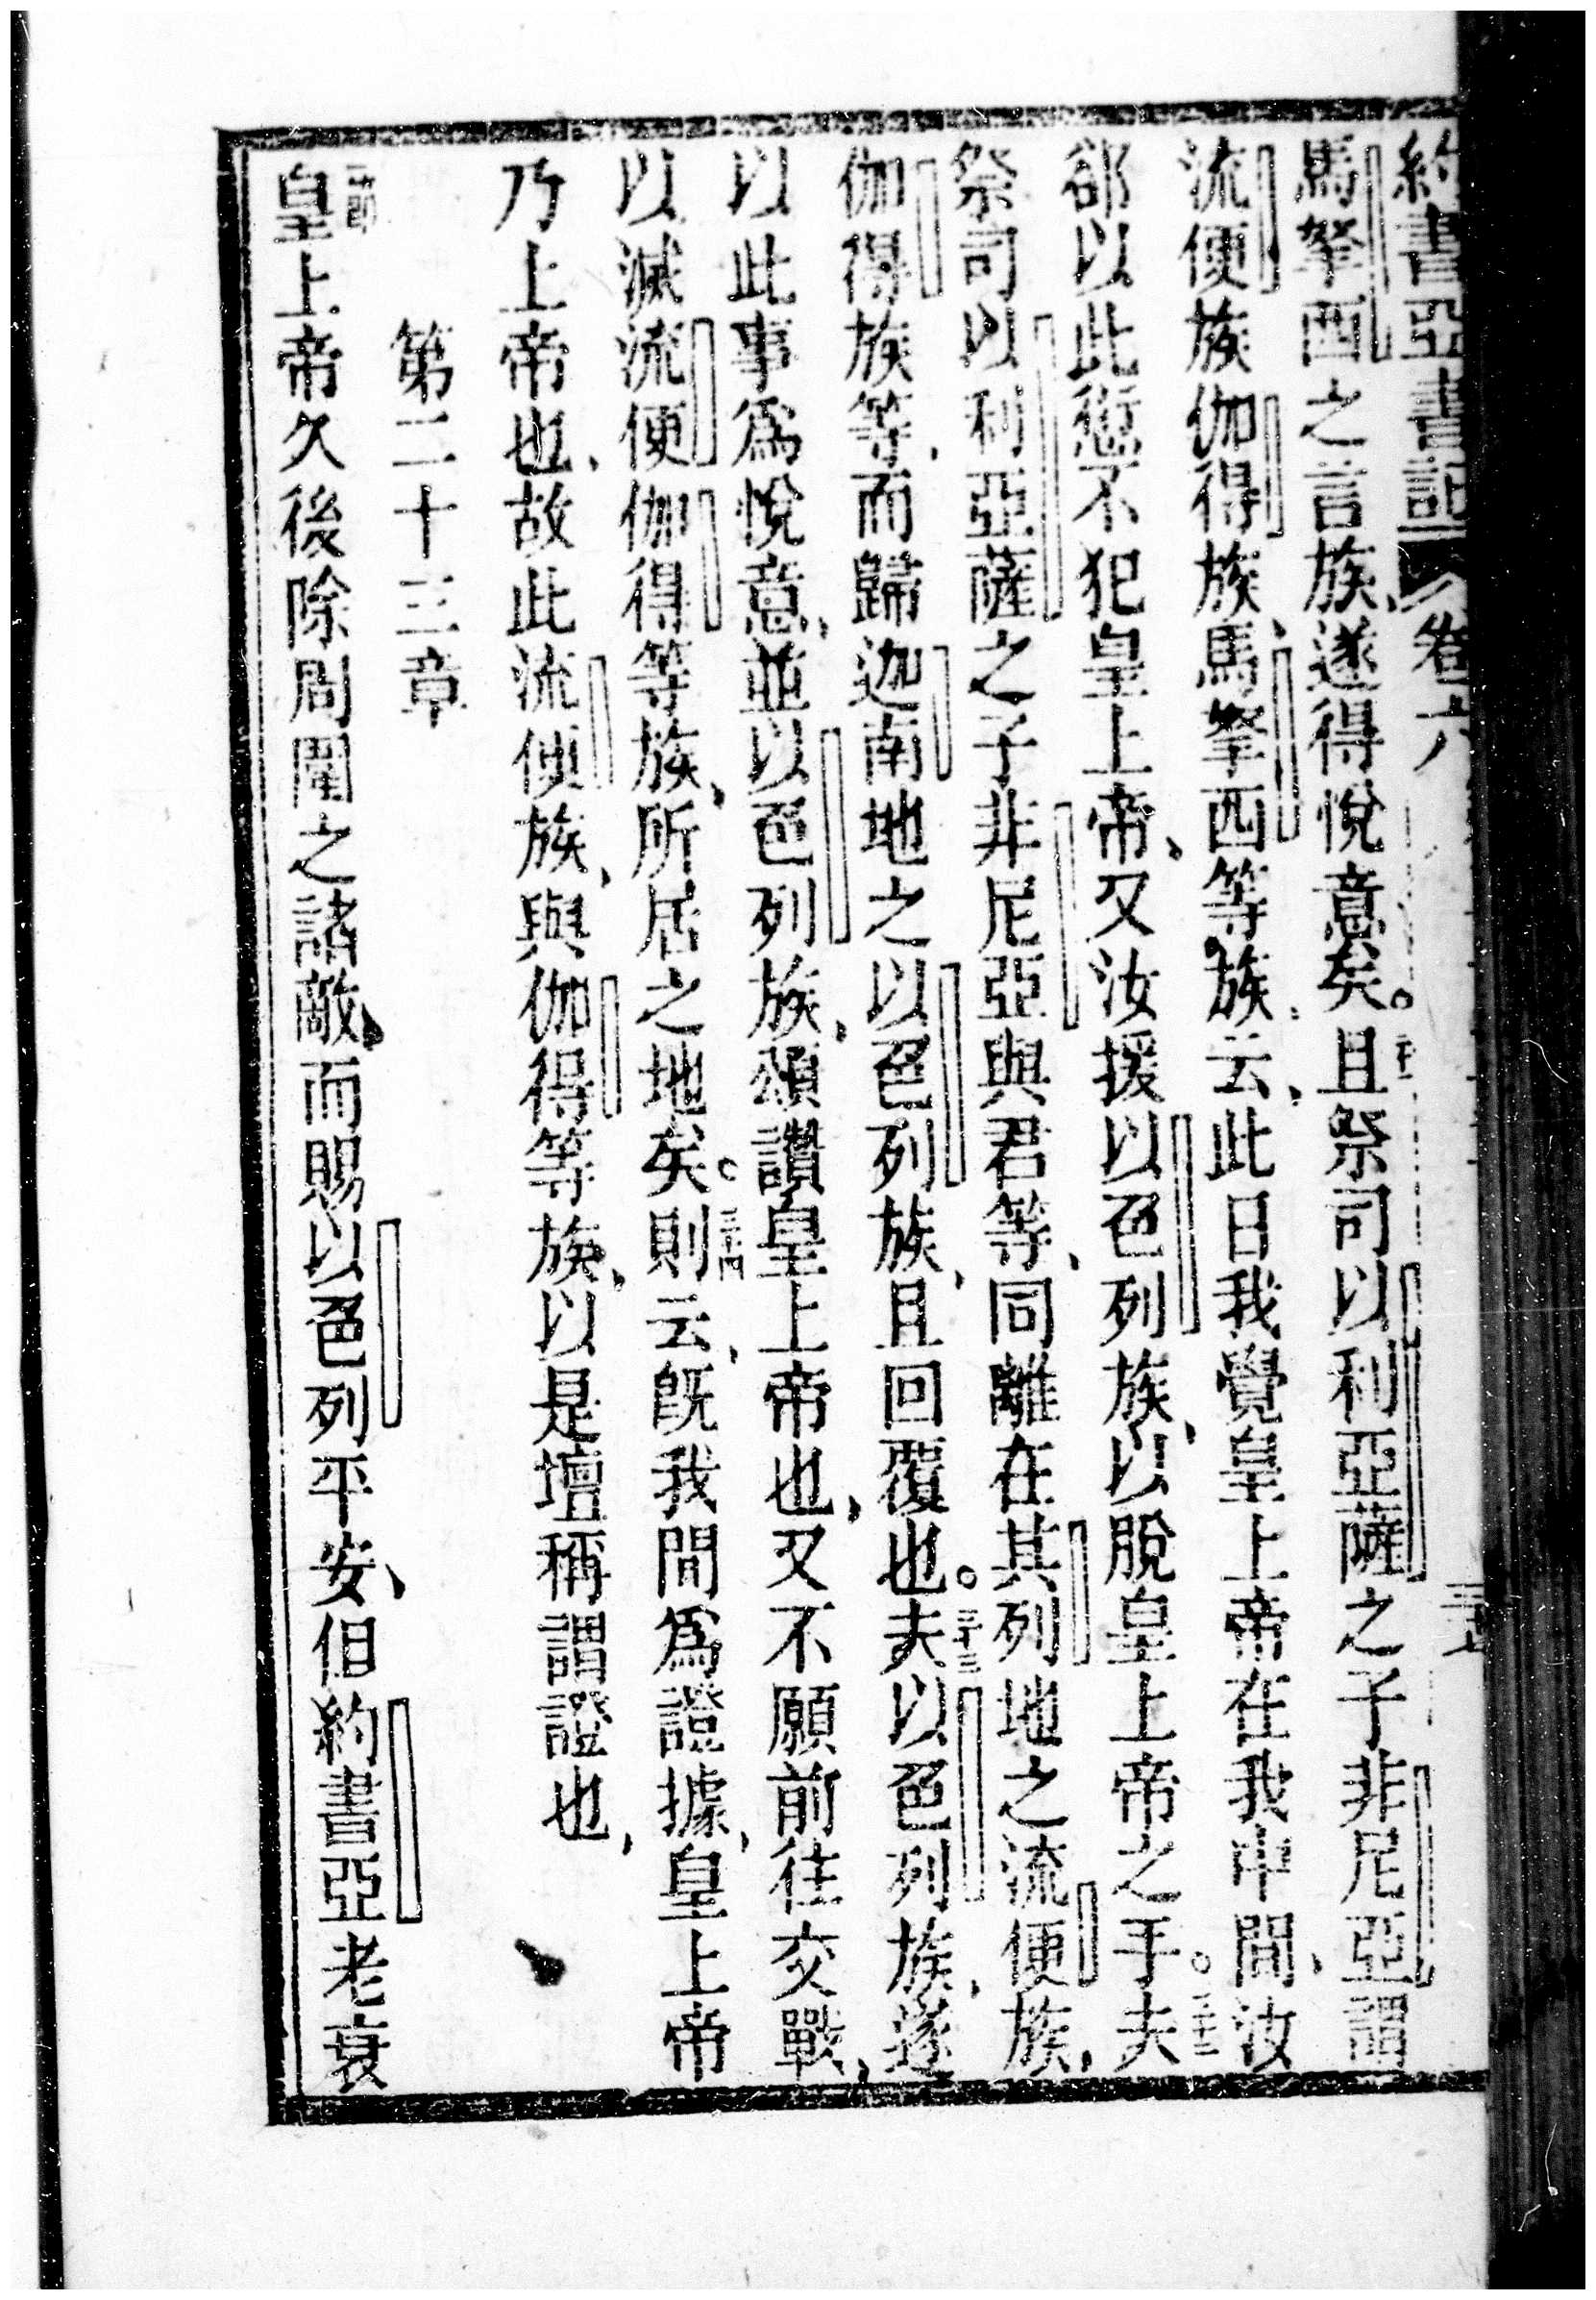 約書亞書記 卷六
馬拏西之言族、遂得悅意矣。且祭司以利亞薩之子非尼亞謂
流便族伽得族、馬拏西等族云、此日我覺皇上帝在我中間、汝
郤以此愆不犯皇上帝、又汝援以色列族、以脫皇上帝之手。夫
祭司以利亞薩之子非尼亞與君等、同離在其列地之流便族、
伽得族等、而歸迦南地之以色列族、且回覆也。三十三夫以色列族、遂
以此事為悅意、並以色列族、頌讚皇上帝也、又不願前往交戰、
以滅流便伽得等族、所居之地矣。三十四則云、既我間為證據、皇上帝
乃上帝也、故此流便族、與伽得等族、以是壇稱謂證也、
第二十三章
一節皇上帝久後除周圍之諸敵、而賜以色列平安、但約書亞老衰